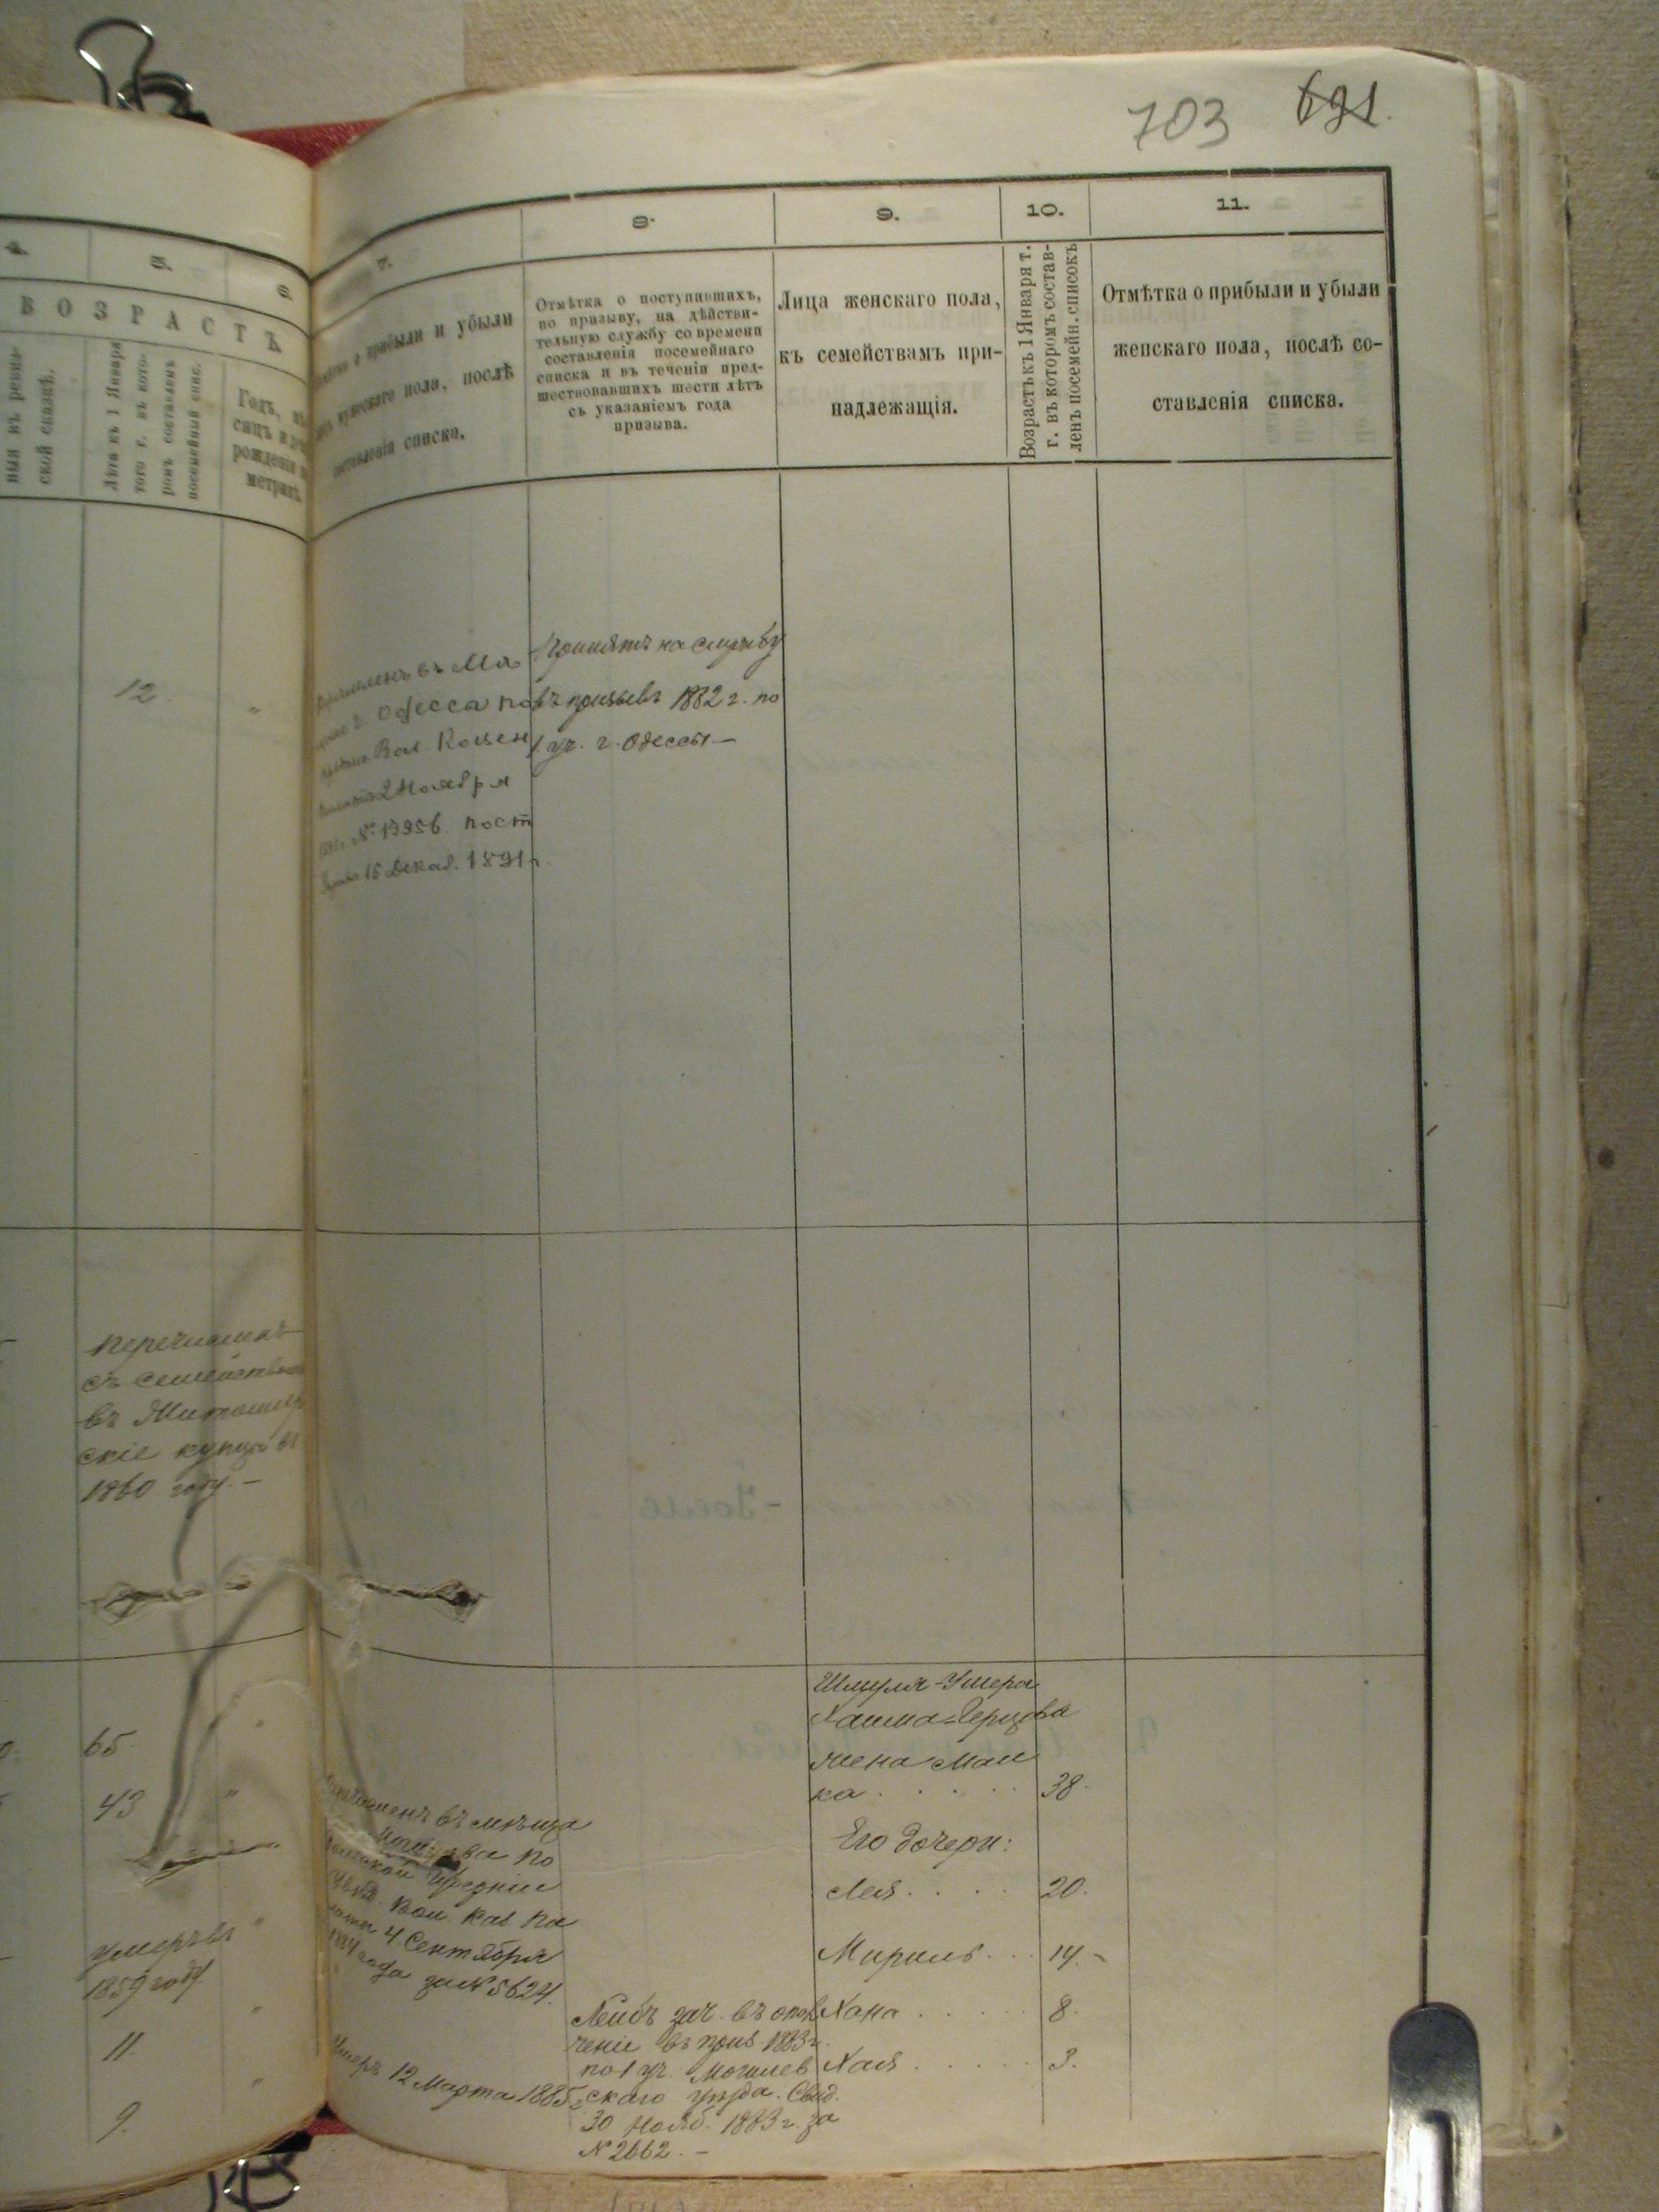 703 691.
4.
5.
6.
7.
8.
9.
10.
11.
ВОЗРАСТЪ
ныя въ ревиз-
ской сказкѣ.
Лѣта къ 1 Января
того г. въ кото-
ромъ составленъ
посемейный спис.
Годъ, мѣ-
сяцъ и
рожденія
метрик.
о прибыли и убыли
мужскаго пола, послѣ
составленія списка.
Отмѣтка о поступившихъ,
по призыву, на дѣйстви-
тельную службу со времени
составленія посемейнаго
списка и въ теченіи пред-
шествовавшихъ шести лѣтъ
съ указаніемъ года
призыва.
Лица женскаго пола,
къ семействамъ при-
надлежащія.
Возрастъ къ 1 Января т.
г. въ которомъ состав-
ленъ посемейн. списокъ
Отмѣтка о прибыли и убыли
женскаго пола, послѣ со-
ставленія списка.
12
въ Мѣ
г. Одесса по
Вол. Казен
2 Ноября
№ 13956 пост
16 Декаб. 1891 г.
Принятъ на службу
въ призывъ 1882 г. по
1 уч. г. Одессы.—
перечисленъ
съ семействомъ
въ Житомир
скіе купцы въ
1860 году.—
65
43
умеръ въ
1859 году.
11
9.
перечисленъ въ мѣща
по
губерніи
Вол. Каз. Па
латы 4 Сентября
1884 года за № 5624.
Умеръ 12 Марта 1885 г.
Лейбъ зач. въ опол
ченіе въ приз. 1883 г.
по 1 уч. Могилев
скаго уѣзда. Свид.
30 Нояб. 1883 г. за
№ 2662.—
Шмуля-Ушера
Хаима-Герцова
жена Мал
ка . . . . 38.
Его дочери:
Лея . . . . 20.
Мириль . . . 14.-
Хана . . . . . 8.
Хая . . . . . 3.